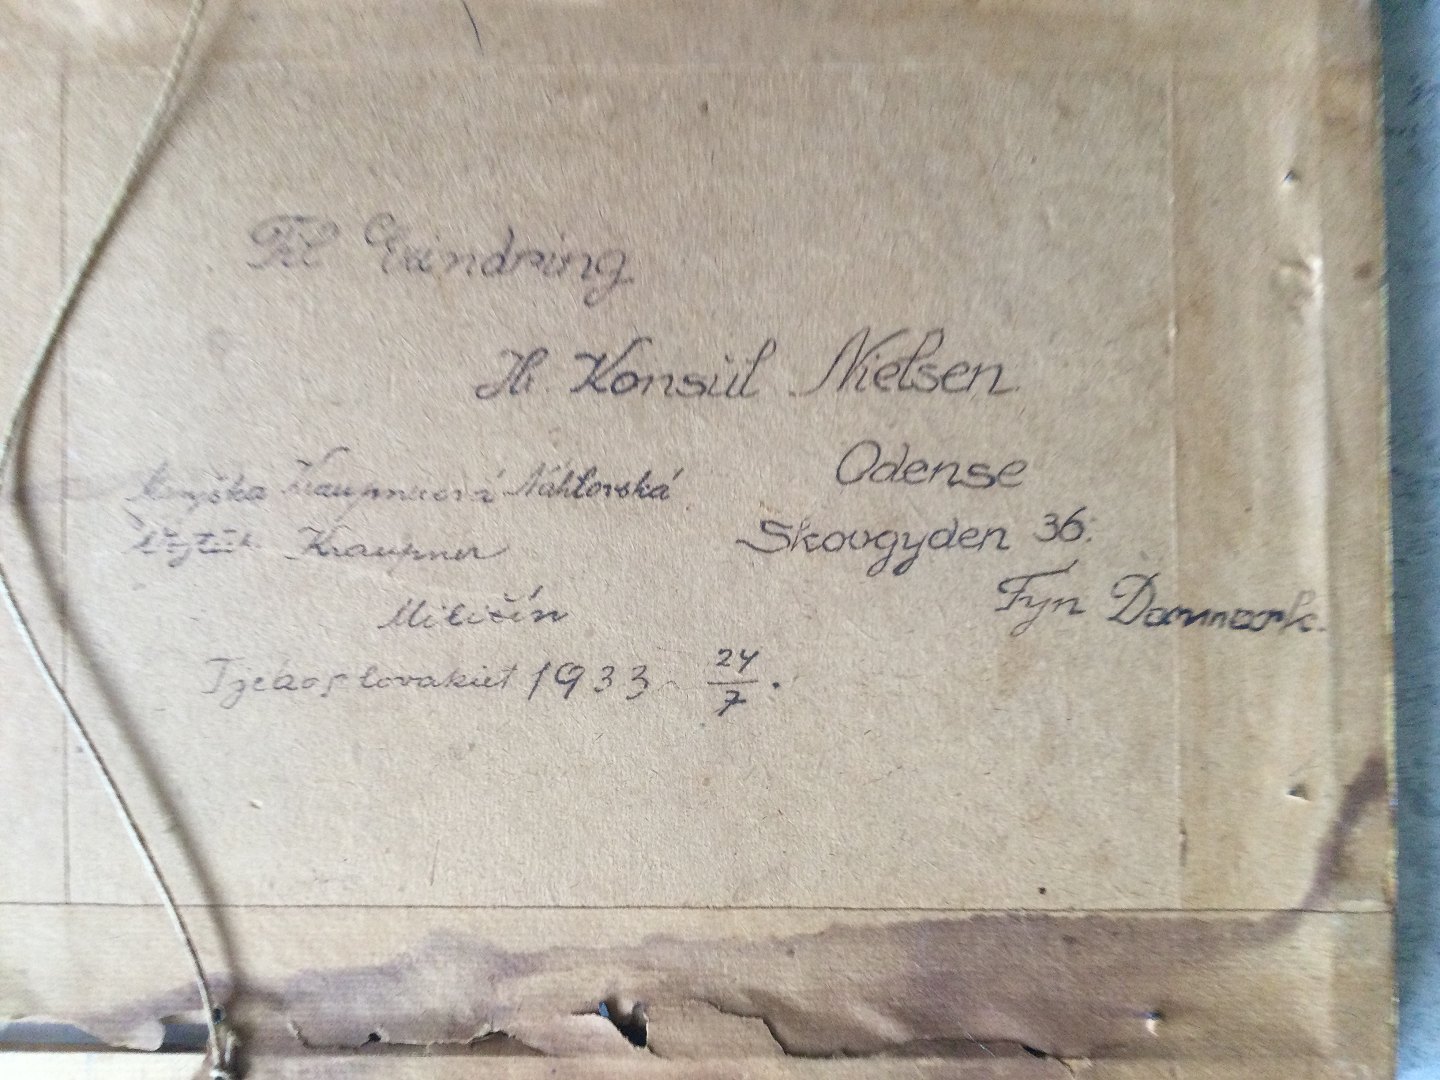 Til Erindring
Hr. Konsul Nielsen
Odense
Skovgyden 36.
Fyn Danmark.
Maryška Kraupnerová Náhlovská
Kraupner
Miličín
Tjekoslovakiet 1933 24/7.